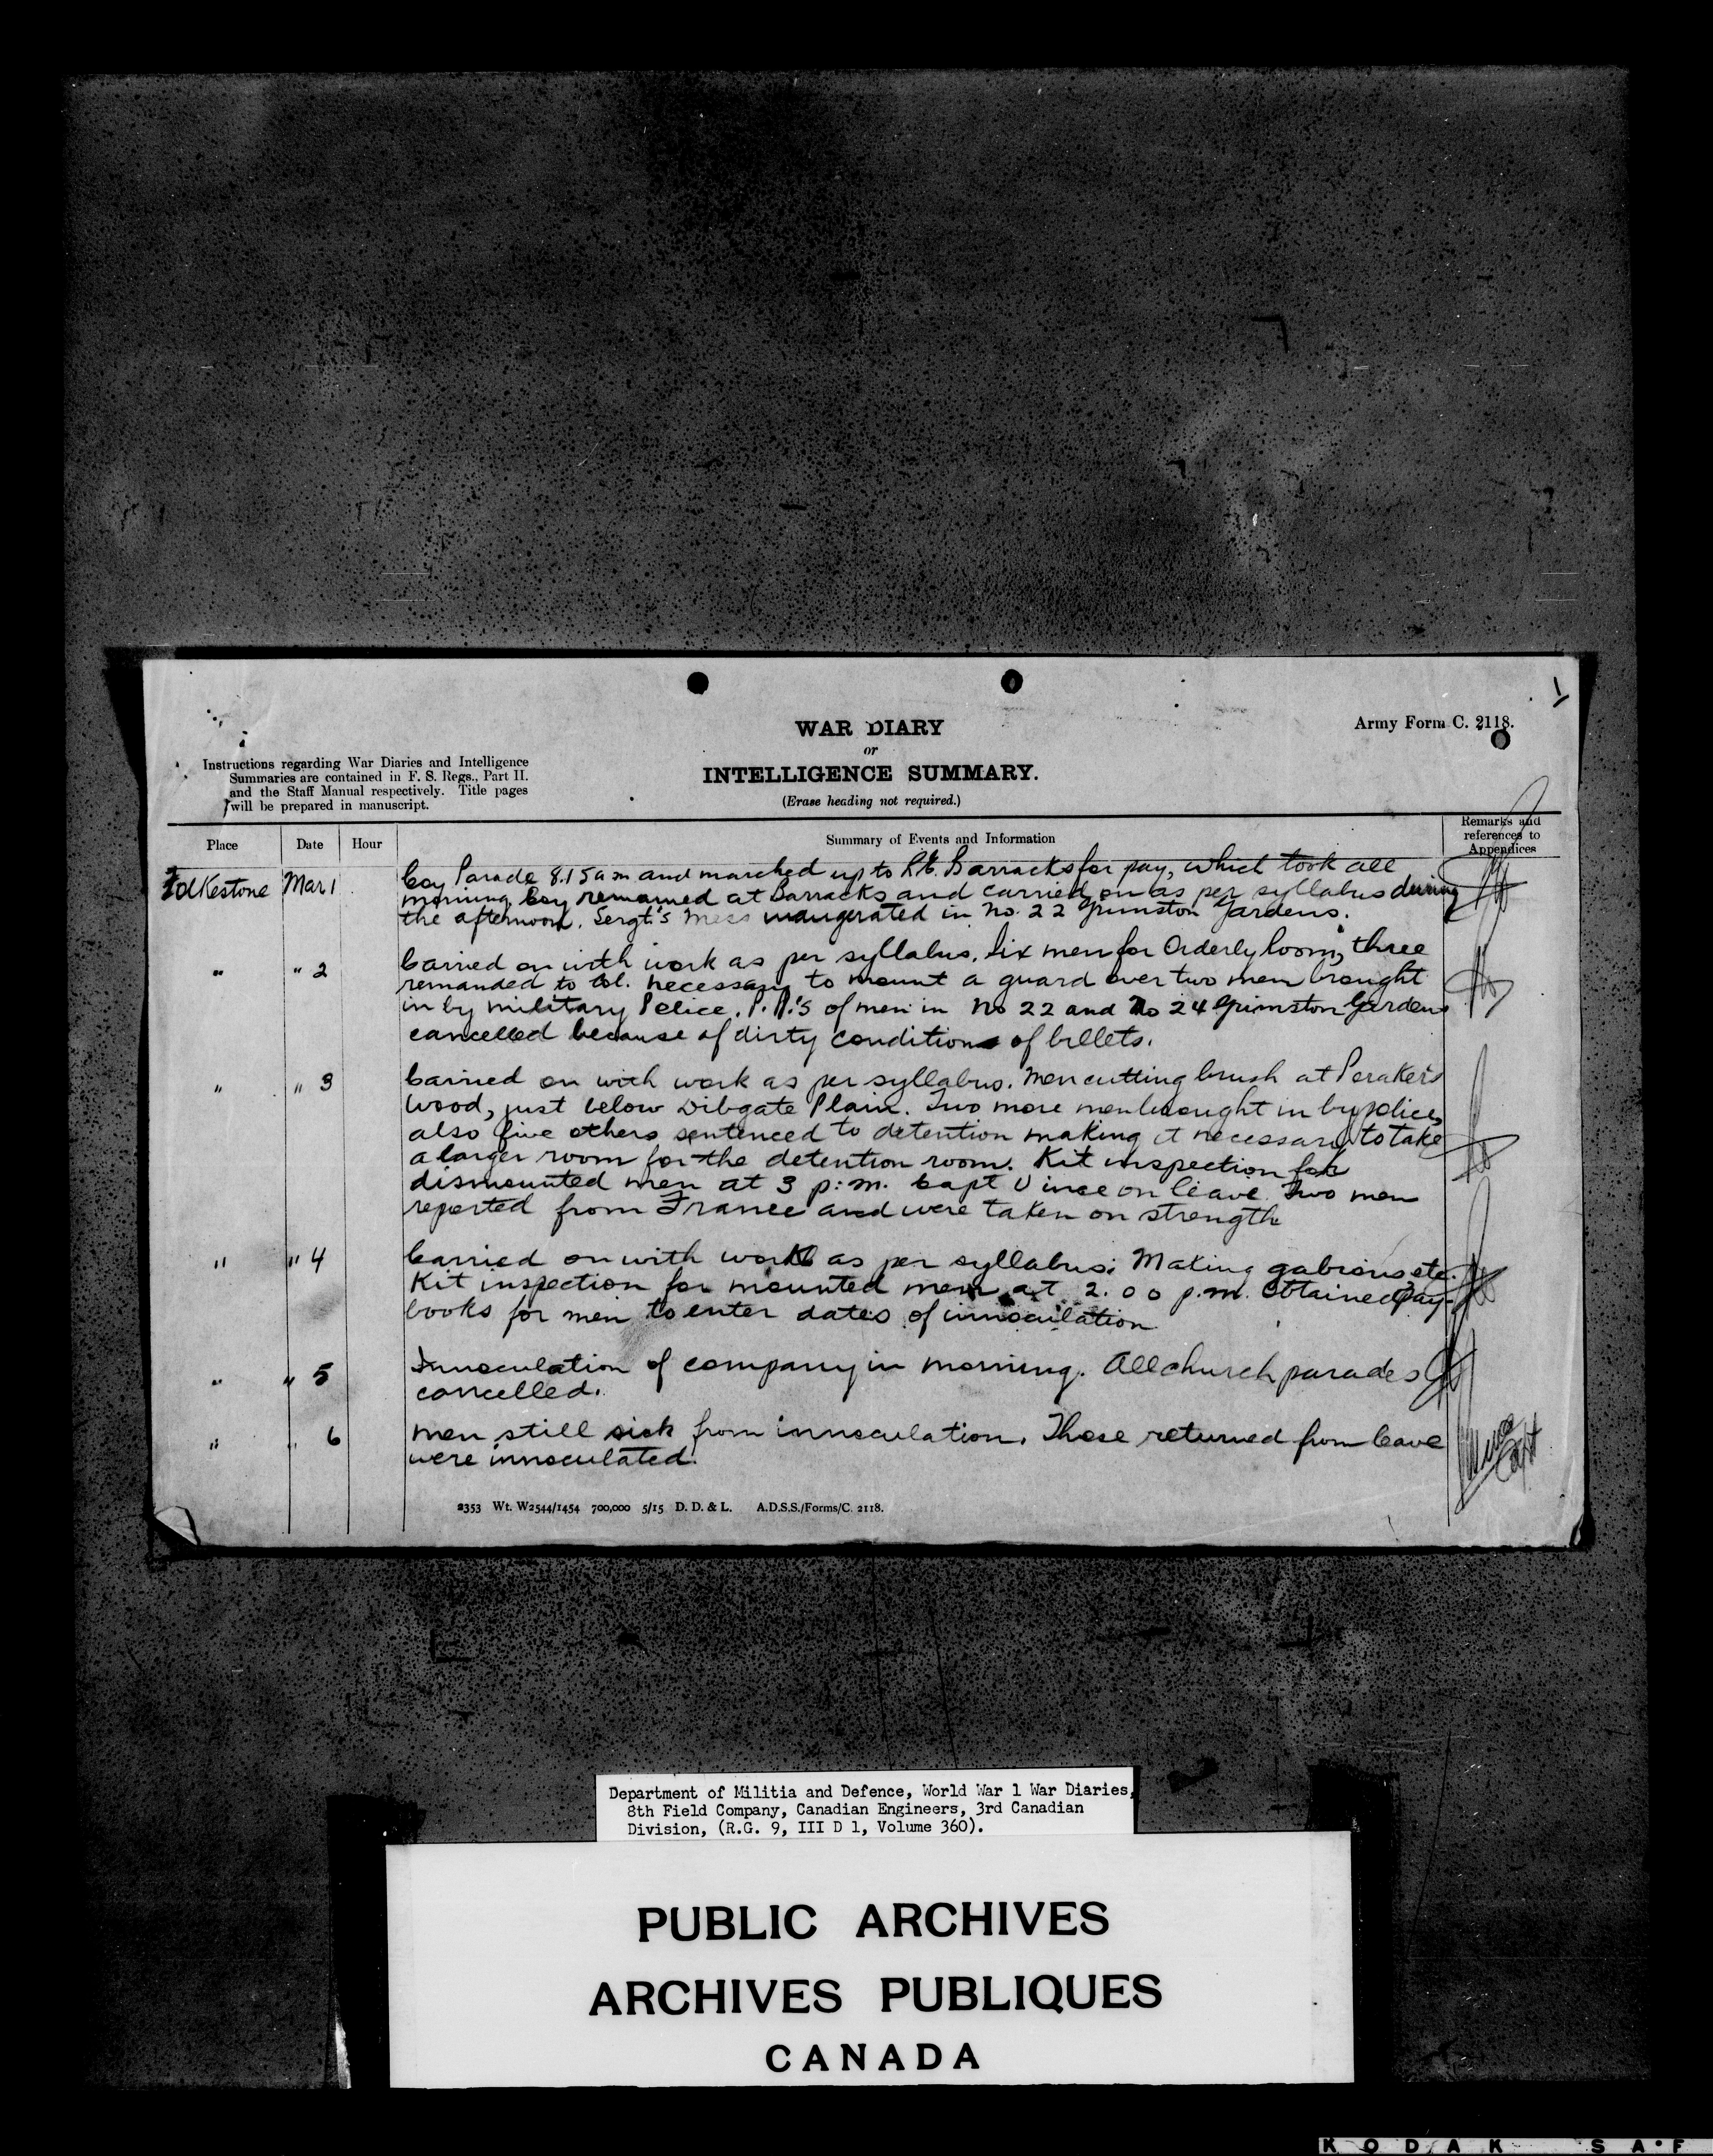 1
Army Form C. 2118.
WAR DIARY
or
INTELLIGENCE SUMMARY.
(Erase heading not required.)
Instructions regarding War Diaries and Intelligence
Summaries are contained in F. S. Regs., Part II.
and the Staff Manual respectively. Title pages
will be prepared in manuscript.
Place Date Hour Summary of Events and Information Remarks and references to Appendices
Folkestone Mar 1 Coy Parade 8.15 am and marched up to Barracks for pay, which took all
morning. Coy remained at Barracks and carried on as per syllabus during
the afternoon. Sergt.'s Mess inaugerated in No. 22 Grimston Gardens.
" " 2 Carried on with work as per syllabus. Six men for Orderly Room, three
remanded to Col. necessary to mount a guard over two men brought
in by Military Police. P.P.'s of men in No 22 and No 24 Grimston Gardens
cancelled because of dirty condition of billets.
" " 3 Carried on with work as per syllabus. Men cutting brush at
Wood, just below Dibgate Plain. Two more men brought in by police,
also five others sentenced to detention making it necessary to take
a larger room for the detention room. Kit inspection for
dismounted men at 3 p.m. Capt Vince on leave. Two men
reported from France and were taken on strength
" " 4 Carried on with work as per syllabus; Making gabions etc.
Kit inspection for mounted men at 2.00 p.m. Obtained Pay-
books for men to enter dates of innoculation
" " 5 Innoculation of company in morning. All church parades
cancelled.
" " 6 Men still sick from innoculation. Those returned from leave
were innoculated.
Vince
Capt
2353 Wt. W2544/1454 700,000 5/15 D. D. & L. A.D.S.S./Forms/C. 2118.
Department of Militia and Defence, World War 1 War Diaries,
8th Field Company, Canadian Engineers, 3rd Canadian
Division, (R.G. 9, III D 1, Volume 360).
PUBLIC ARCHIVES
ARCHIVES PUBLIQUES
CANADA
KODAK SAF